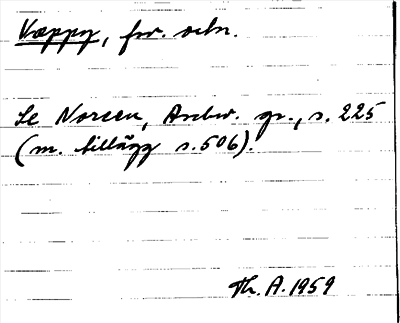 Kæppy, fsv. ortn.
Se Noreen, Aschw. gr., s. 225
(m. tillägg s. 506).
Th. A. 1959